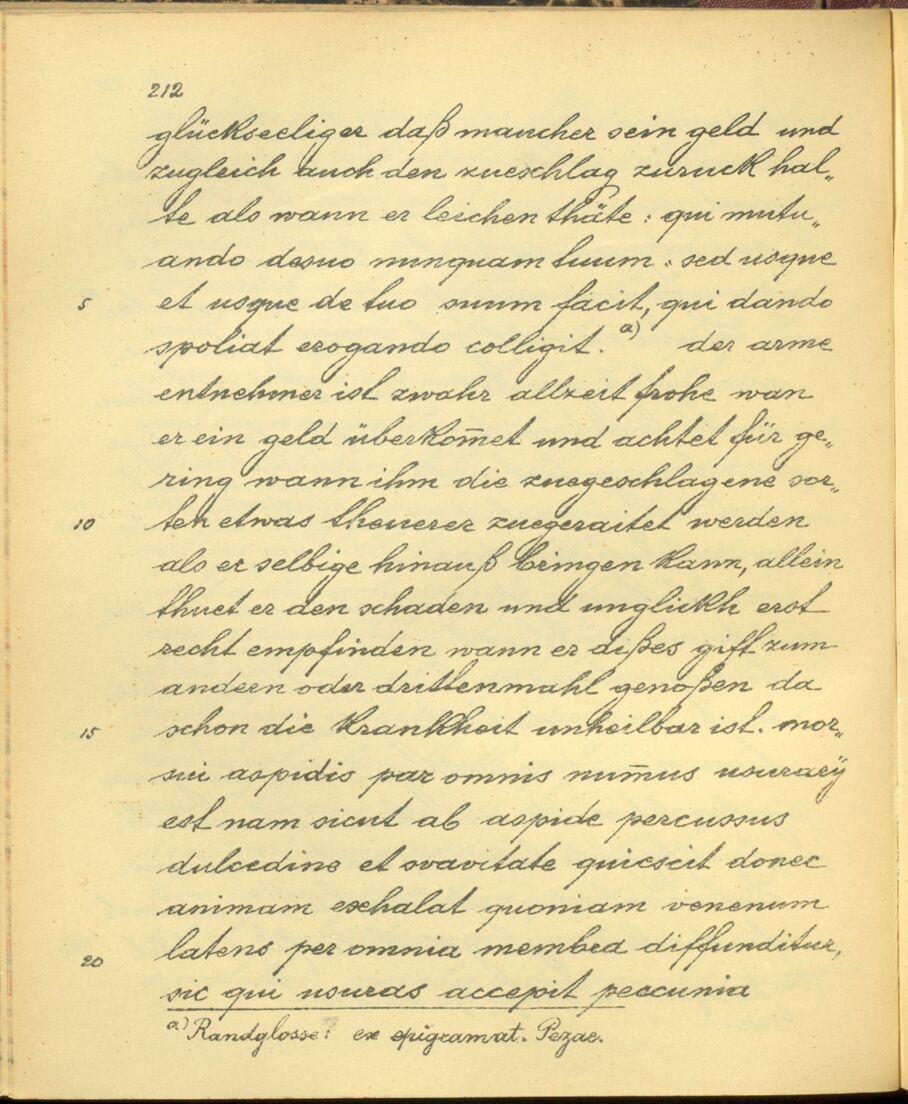 212
glückseeliger daß mancher sein geld und
zugleich auch den zueschlag zuruck hal„
te als wann er leichen thäte : qui mutu„
ando desuo nunquam tuum . sed usque
5 et usque de tuo suum facit, qui dando
spoliat erogando colligit. a) der arme
entnehmer ist zwahr allzeit frohe wan
er ein geld überkom̄et und achtet für ge„
ring wann ihm die zuegeschlagene sor„
10 ten etwas theuerer zuegeraitet werden
als er selbige hinauß bringen kann, allein
thuet er den schaden und unglickh erst
recht empfinden wann er dißes gift zum
andern oder drittenmahl genoßen da
15 schon die Krankheit unheilbar ist. mor„
sui aspidis par omnis num̄us usurarÿ
est nam sicut ab aspide percussus
dulcedine et svavitate quiescit donec
animam exhalat quoniam venenum
20 latens per omnia membra diffunditur,
sic qui usuras accepit peccunia
a) Randglosse : ex epigramat. Pezae.